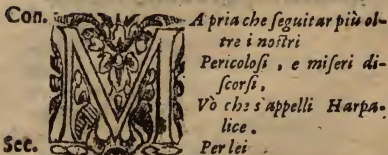 Con. MA pria che ſeguitar più ol-
tre i noſtri
Pericoloſi, e miſeri di-
ſcorſi,
Vò che s'appelli Harpa-
lice.
Sec. Per lei